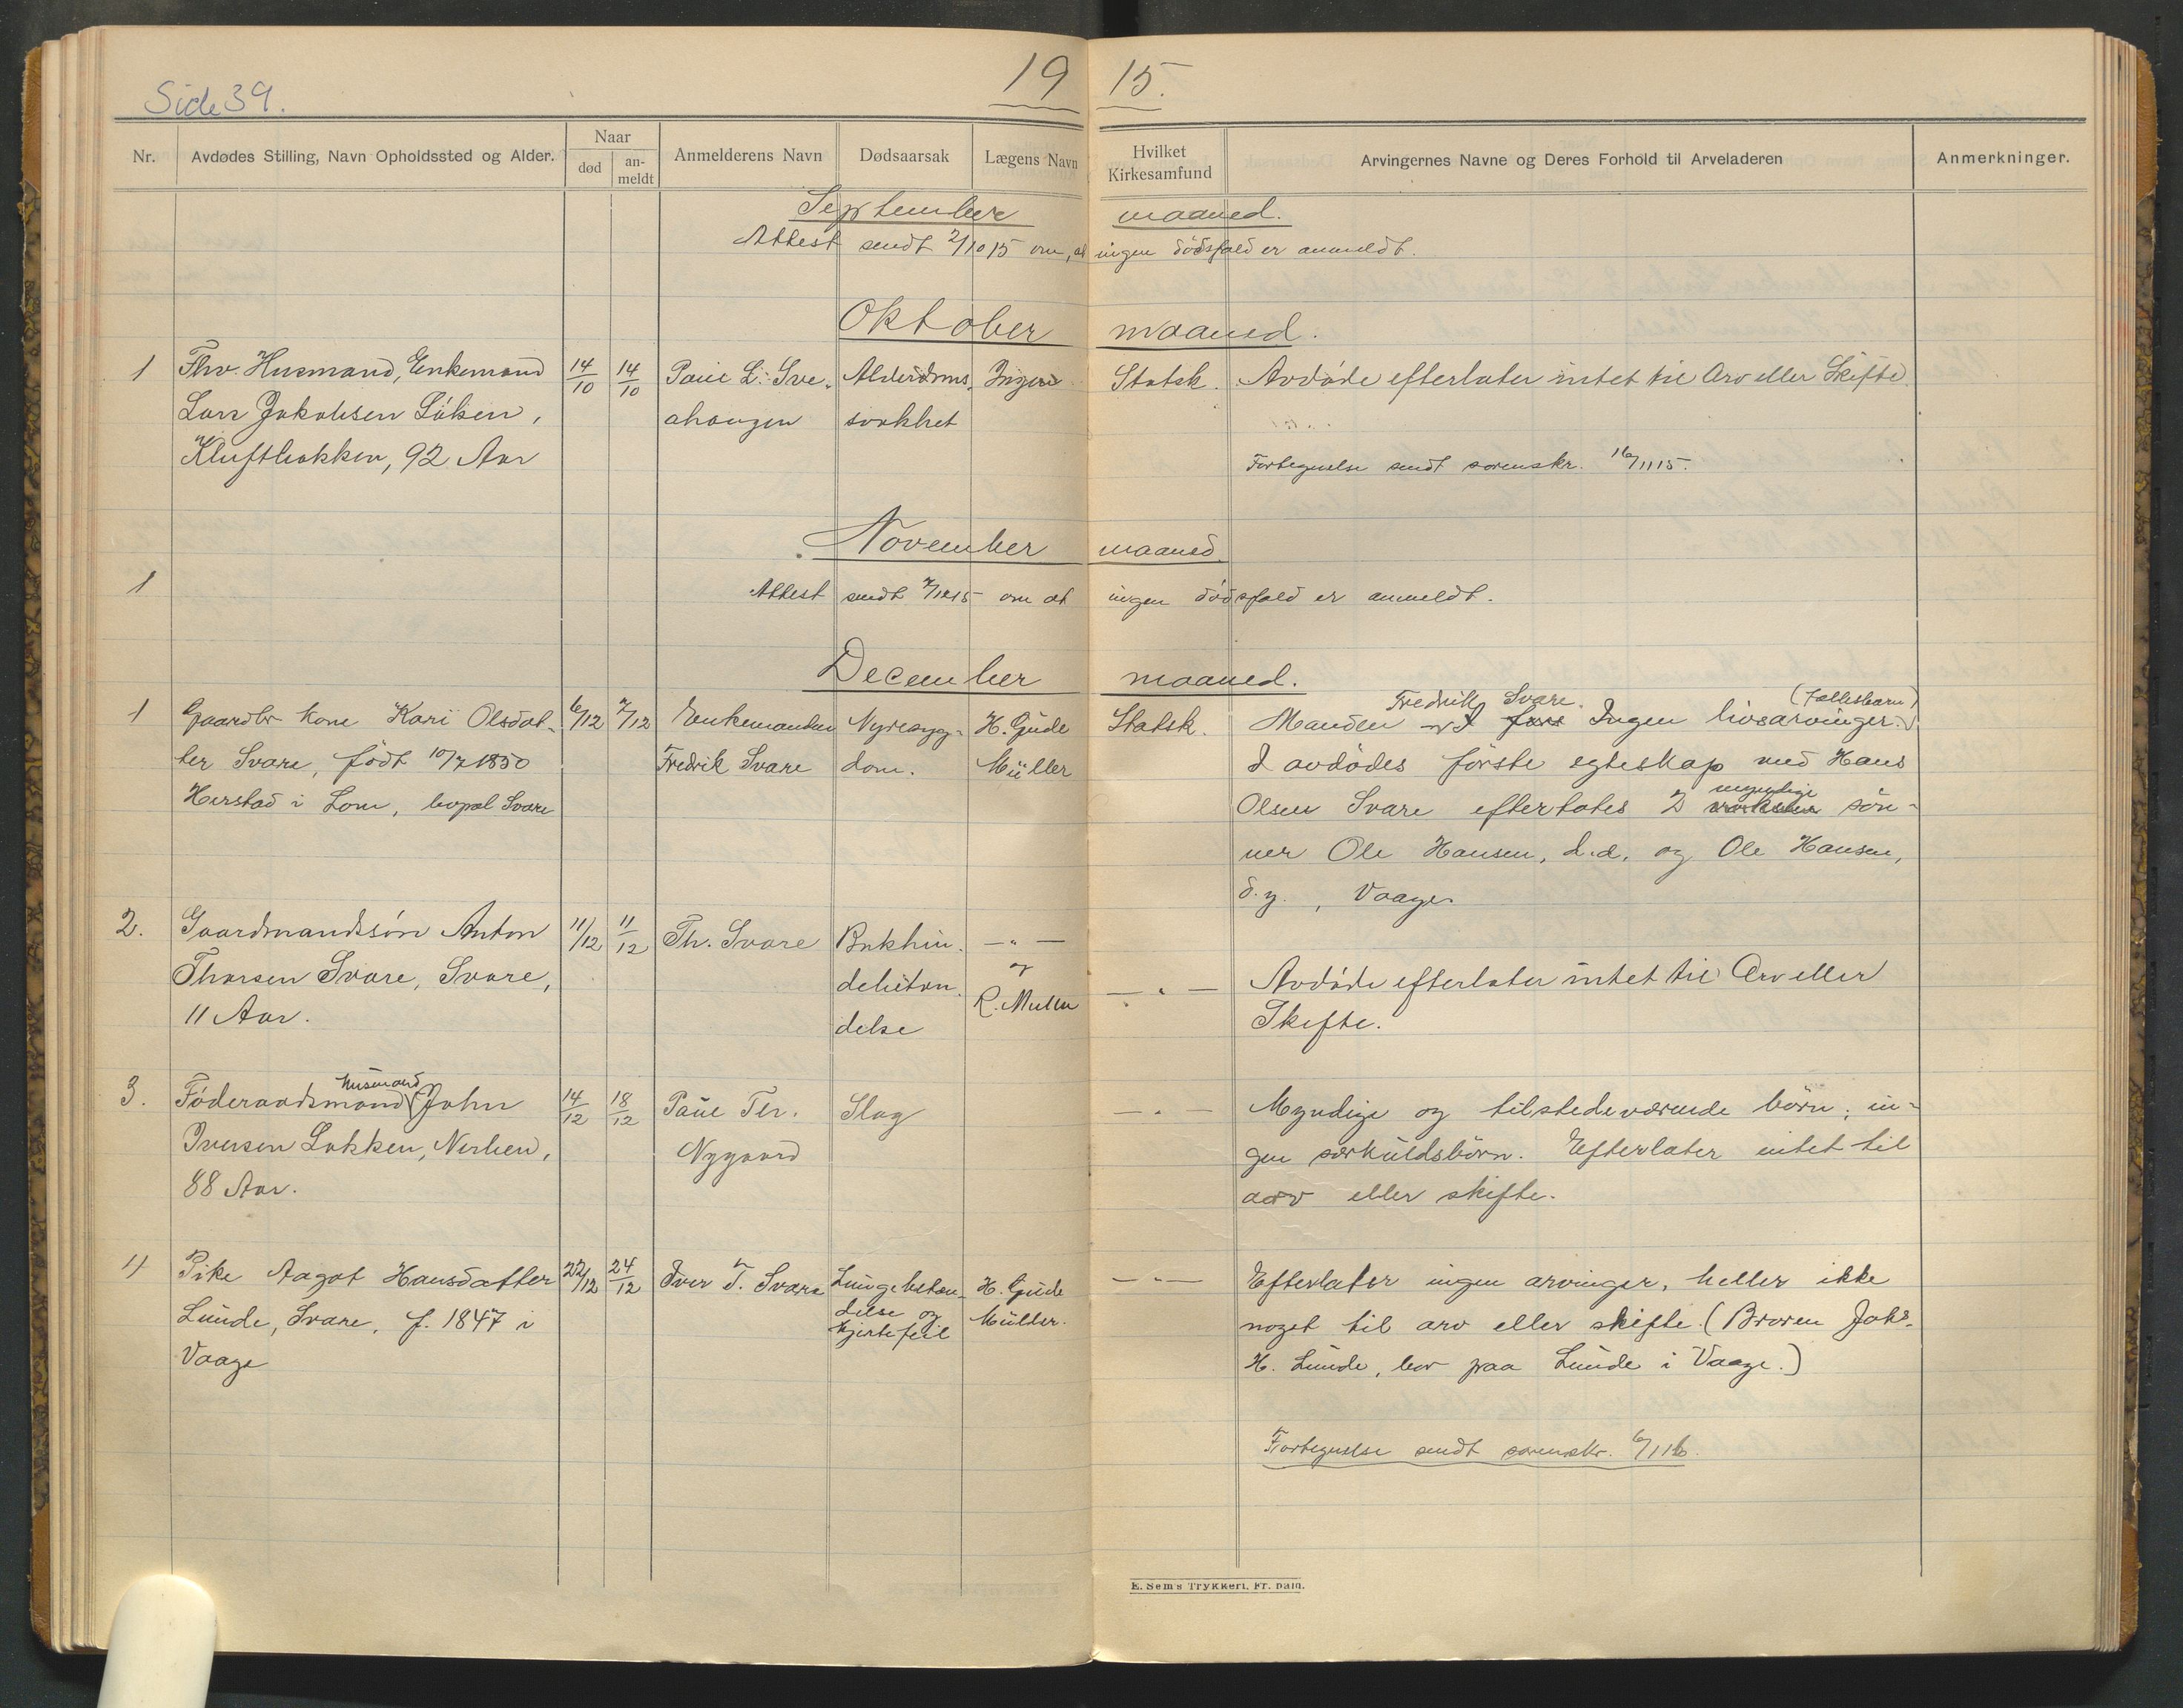 Side 39.
19 15.
Nr. Avdødes Stilling, Navn Opholdssted og Alder. Naar død an-meldt Anmelderens Navn Dødsaarsak Lægens Navn Hvilket Kirkesamfund Arvingernes Navne og Deres Forhold til Arveladeren Anmerkninger.
September maaned.
Attest sendt 2/10 15 om, at ingen dødsfald er anmeldt.
Oktober maaned.
1 Fhv. Husmand, Enkemand 14/10 14/10 Paul L. Sve- Alderdoms- Ingen Statsk. Avdøde efterlater intet til Arv eller Skifte
Lars Jakobsen Løken, ahaugen svakhet
Kluftbakken, 92 Aar Fortegnelse sendt sorenskr. 16/11 15.
November maaned
1 Attest sendt 7/12 15 om at ingen dødsfald er anmeldt.
December maaned.
Fredrik Svare. (Fællesbarn)
1 Gaardbr kone Kari Olsdat- 6/12 7/12 Enkemanden Nyresyg- H. Gude Statsk. Manden Ingen livsarvinger.
ter Svare, født 10/7 1850 Fredrik Svare dom. Müller I avdødes første egteskap med Hans
myndige
Herstad i Lom, bopæl Svare Olsen Svare efterlates 2 voksne søn-
ner Ole Hansen, d.e. og Ole Hansen,
d.y., Vaage.
2. Gaardmandssøn Anton 11/12 11/12 Th. Svare Bukhin- —"—
Thorsen Svare, Svare, debetæn- og —"— Avdøde efterlater intet til Arv eller
11 Aar. delse R. Müller Skifte.
husmand
3. Føderaadsmand John 14/12 18/12 Paul Ter. Slag —"— Myndige og tilstedeværende børn; in-
Iversen Løkken, Nerlien, Nygaard gen særkuldsbørn. Efterlater intet til
88 Aar. arv eller skifte.
4 Pike Aagot Hansdatter 22/12 24/12 Iver T. Svare Lungebetæn- H. Gude —"— Efterlater ingen arvinger, heller ikke
Lunde, Svare, f. 1847 i delse og Müller. noget til arv eller skifte. (Broren Johs.
Vaage hjertefeil H. Lunde, bor paa Lunde i Vaage.)
Fortegnelse sendt sorenskr. 6/1 16.
E. Sem's Trykkeri, Fr. hald.